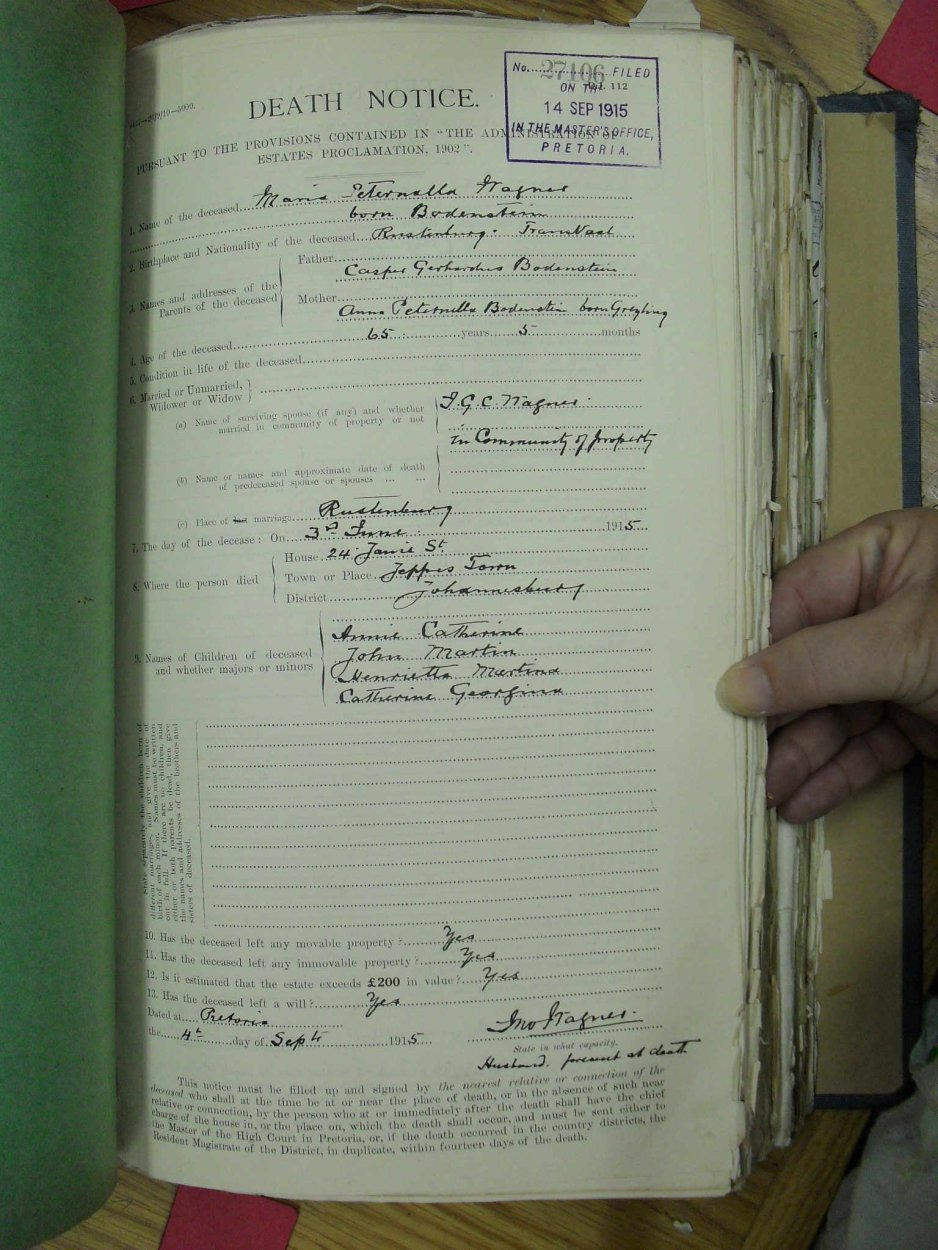 No. 27106 FILED
ON TH
J. 112
14 SEP 1915
IN THE MASTER'S OFFICE,
PRETORIA.
DEATH NOTICE.
PURSUANT TO THE PROVISIONS CONTAINED IN "THE ADMINISTRATION OF
ESTATES PROCLAMATION, 1902".
1. Name of the deceased Maria Peternella Wagner
born Bodenstein
2. Birthplace and Nationality of the deceased Rustenburg. TransVaal
3. Names and addresses of the Parents of the deceased
Father
Casper Gerhardus Bodenstein
Mother
Anna Peternella Bodenstein born Greyling
4. Age of the deceased 65 years 5 months
5. Condition in life of the deceased
6. Married or Unmarried,
Widower or Widow
(a) Name of surviving spouse (if any) and whether
married in community of property or not
J.G.C. Wagner.
In Community of Property
(b) Name or names and approximate date of death
of predeceased spouse or spouses ... ...
(c) Place of last marriage Rustenburg
7. The day of the decease: On 3rd June 1915
8. Where the person died
House 24 Janie St
Town or Place Jeppes Town
District Johannesburg
9. Names of Children of deceased
and whether majors or minors
Annie Catherine
John Martin
Henrietta Martina
Catherine Georgina
State separately the children born of
different marriages, and give the date of
birth of each minor. Names must be written
out in full. If there are no children, and
either or both parents be dead, then give
the names and addresses of the brothers and
sisters of deceased.
10. Has the deceased left any movable property? Yes
11. Has the deceased left any immovable property? Yes
12. Is it estimated that the estate exceeds £200 in value? Yes
13. Has the deceased left a will? Yes
Dated at Pretoria
the 4th day of Septr 1915
Jno Wagner.
State in what capacity.
Husband. present at death
This notice must be filled up and signed by the nearest relative or connection of the
deceased who shall at the time be at or near the place of death, or in the absence of such near
relative or connection, by the person who at or immediately after the death shall have the chief
charge of the house in, or the place on, which the death shall occur, and must be sent either to
the Master of the High Court in Pretoria, or, if the death occurred in the country districts, the
Resident Magistrate of the District, in duplicate, within fourteen days of the death.